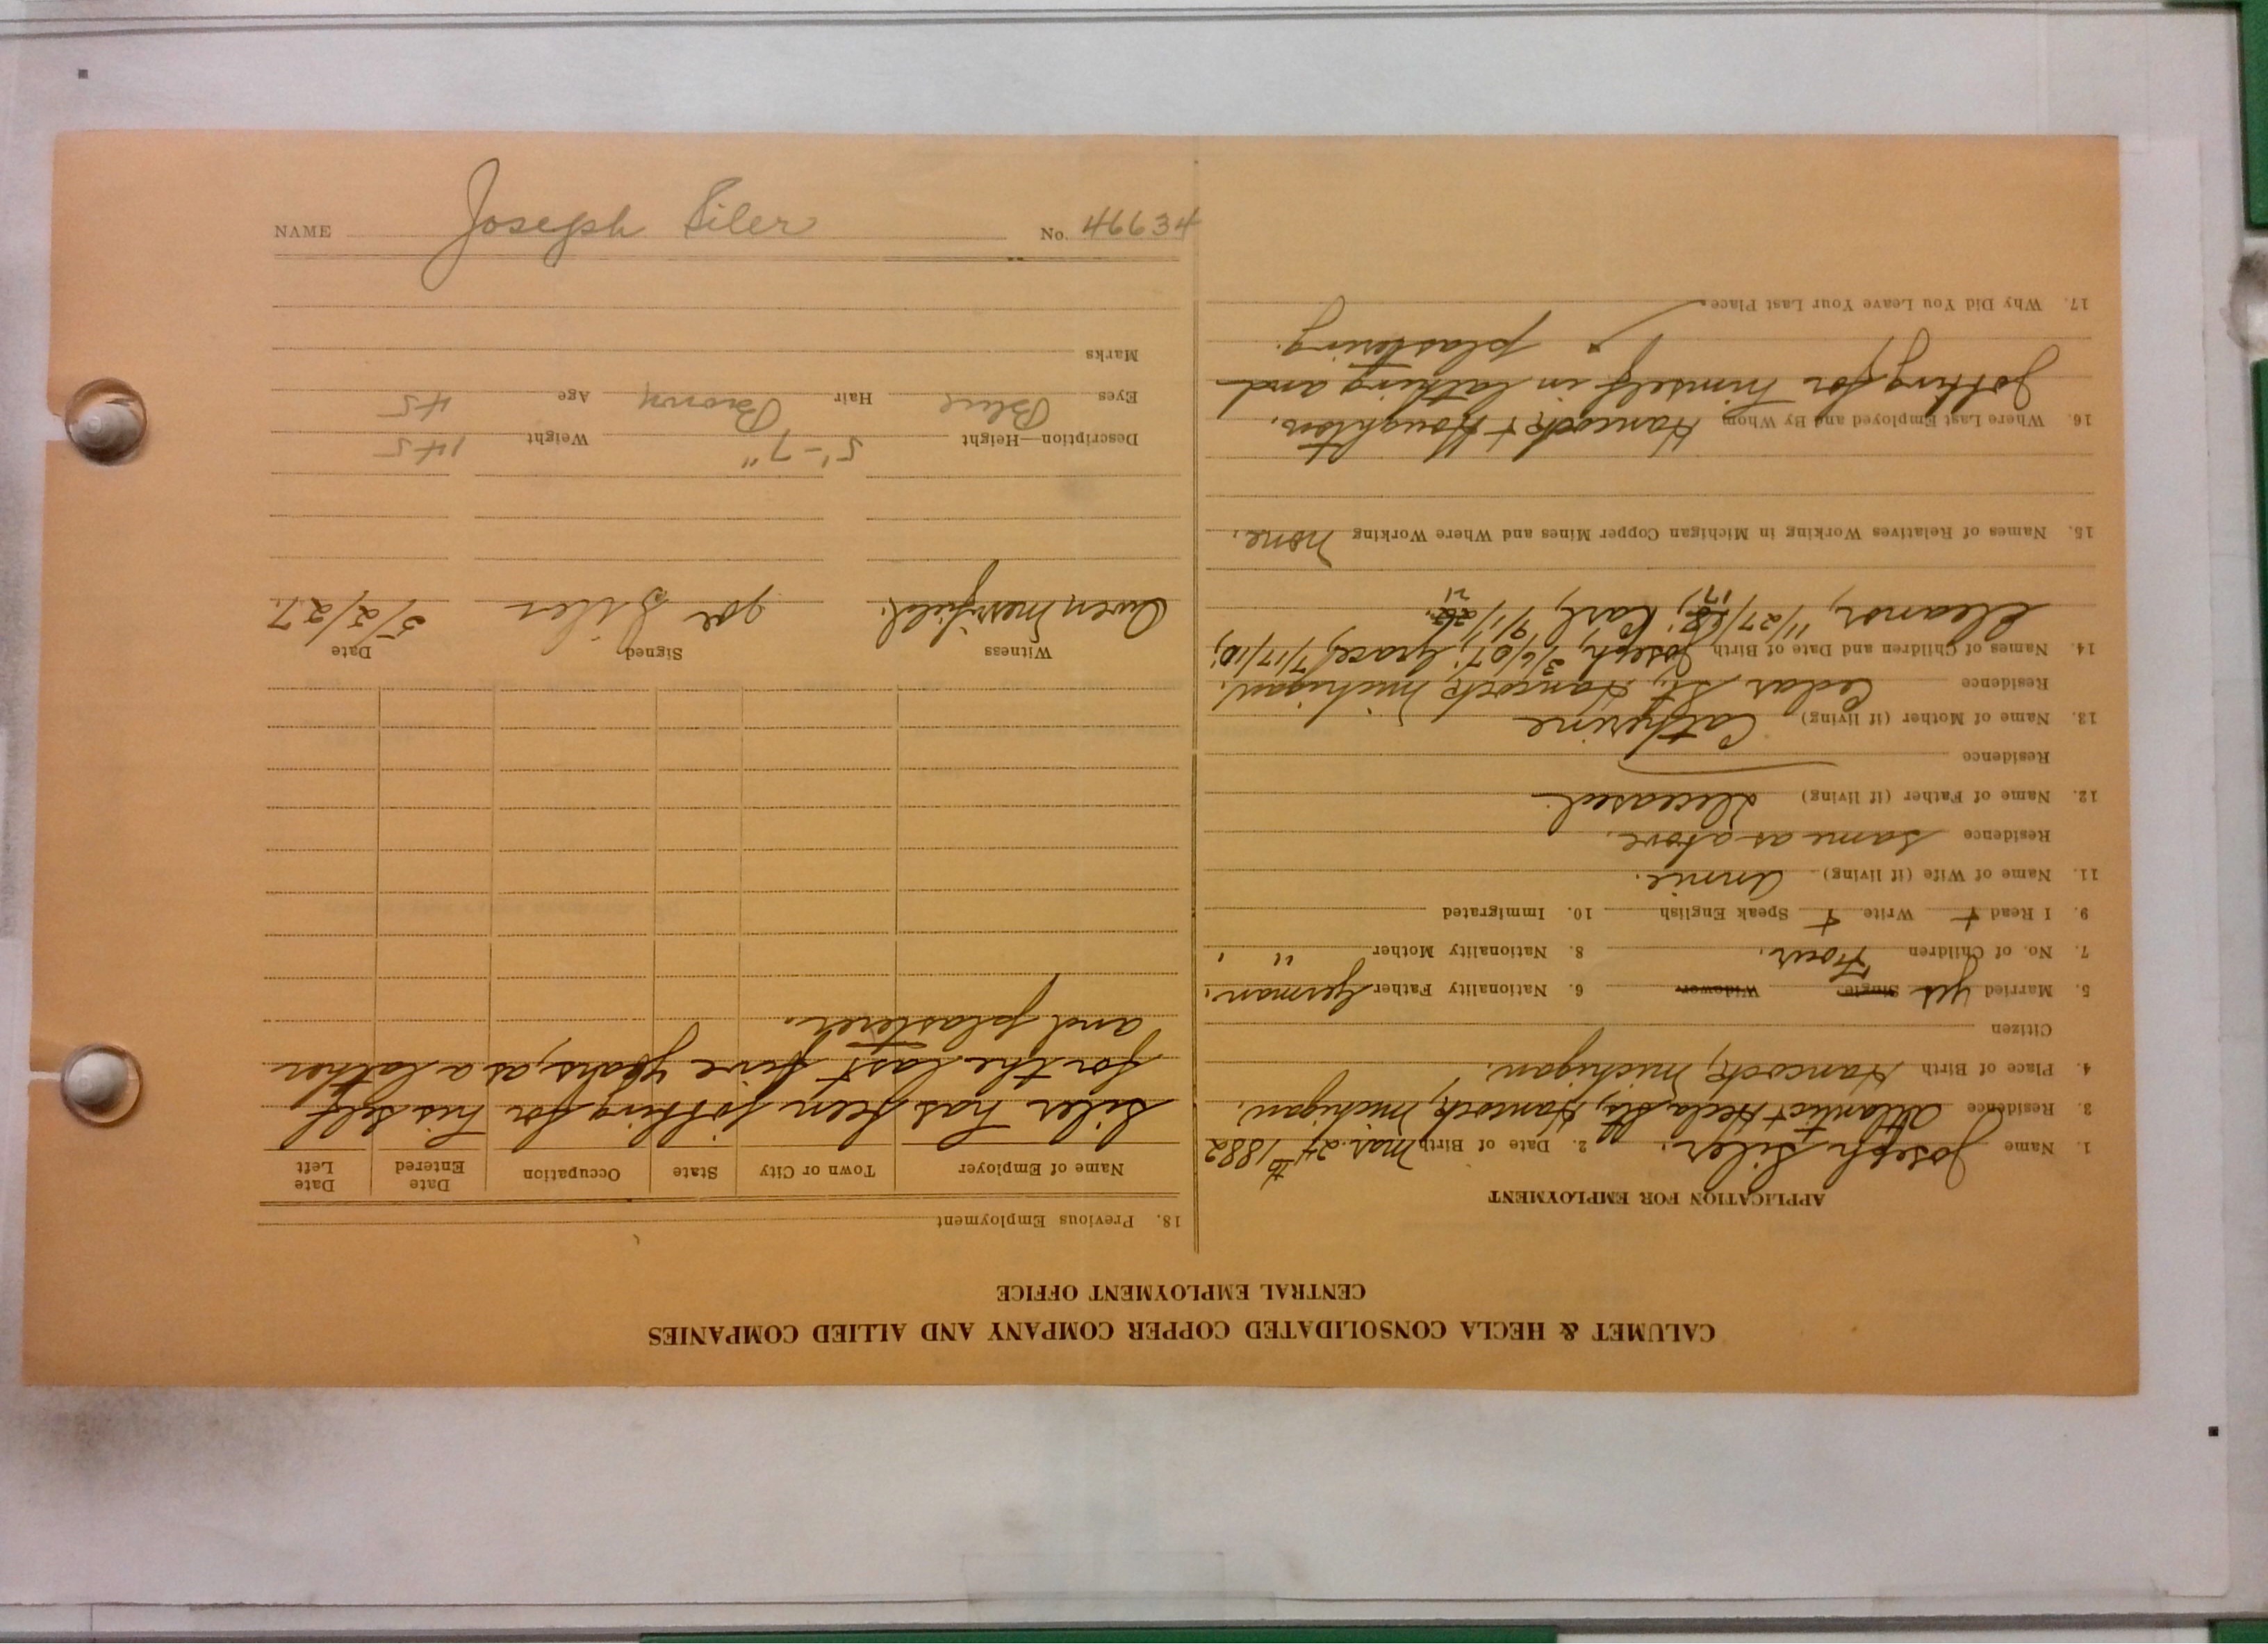 NAME Joseph Siler No. 46634
CALUMET & HECLA CONSOLIDATED COPPER COMPANY AND ALLIED COMPANIES
CENTRAL EMPLOYMENT OFFICE
APPLICATION FOR EMPLOYMENT
1. Name Joseph Siler. 2. Date of Birth Mar. 24th 1882
3. Residence Atlantic & Hecla Sts, Hancock, Michigan.
4. Place of Birth Hancock, Michigan.
Citizen
5. Married yes Single Widower 6. Nationality Father German.
7. No. of Children Four. 8. Nationality Mother " .
9. I Read + Write + Speak English 10. Immigrated
11. Name of Wife (if living) Annie.
Residence Same as above.
12. Name of Father (if living) Deceased.
Residence
13. Name of Mother (if living) Catherine
Residence Cedar St, Hancock, Michigan.
14. Names of Children and Date of Birth Joseph, 3/6/07; Grace, 7/17/10;
Eleanor, 11/27/18; Karl, 9/1/20.
17 21
15. Names of Relatives Working in Michigan Copper Mines and Where Working None.
16. Where Last Employed and By Whom Hancock & Houghton.
Jobbing for himself in lathing and
plastering.
17. Why Did You Leave Your Last Place
18. Previous Employment
Name of Employer Town or City State Occupation Date Entered Date Left
Siler has been jobbing for his self
for the last five years, as a lather
and plasterer.
Witness Signed Date
Owen Merrifield. Joe Siler 5/2/27.
Description—Height 5'-7" Weight 145
Eyes Blue Hair Brown Age 45
Marks